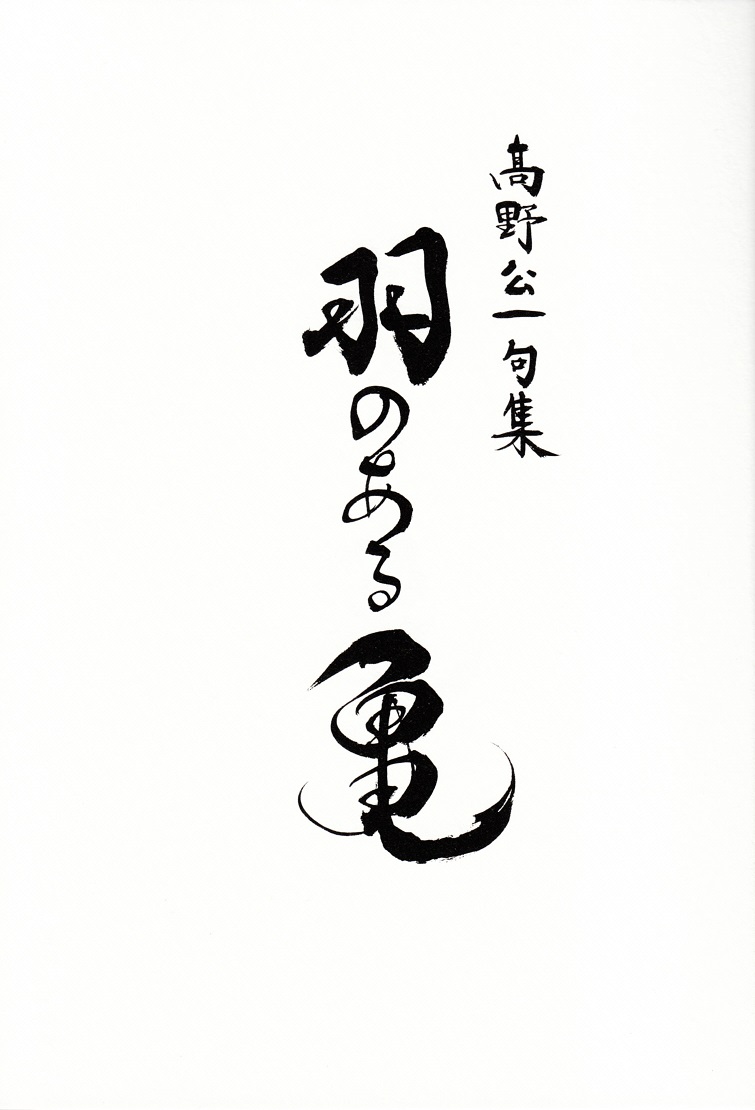 髙野公一句集
羽のある亀